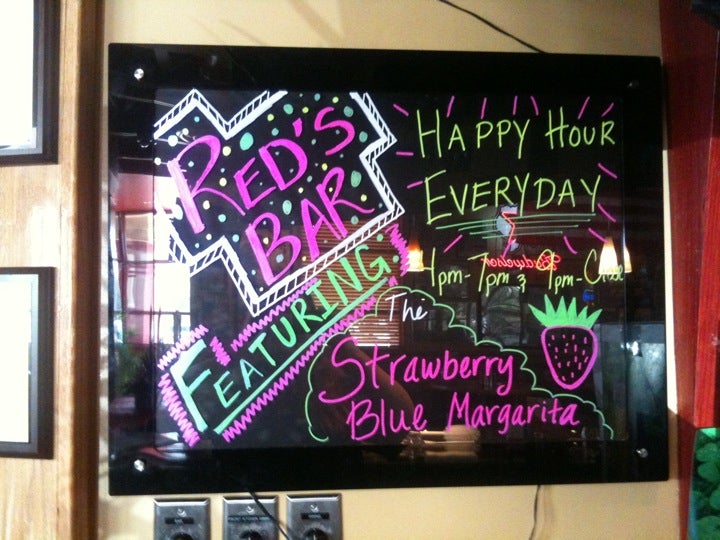 RED'S
BAR
FEATURING
The
Strawberry
Blue Margarita
HAPPY HOUR
EVERYDAY
4pm-7pm & 9pm-Close
Budweiser